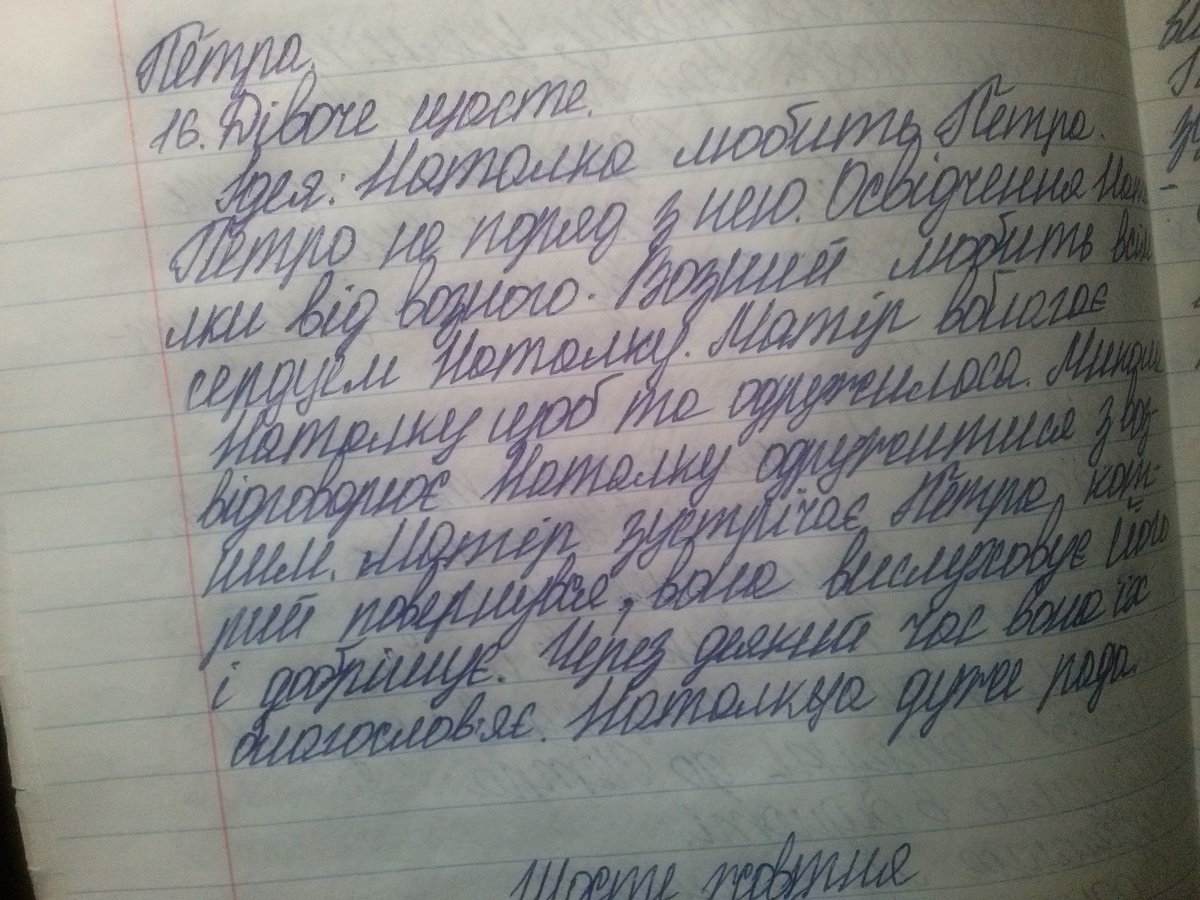 Петра.
16. Дівоче щастє.
Ідея: Наталка любить Петра.
Петро не поряд з нею. Освідчення Ната-
лки від возного. Возний любить всім
сердцем Наталку. Матір вблагає
Наталку щоб та одружилася. Микола
відговорює Наталку одружитися з воз-
ним. Матір зустрічає Петра, кот-
рий повернувся, вона вислуховує його
і добрішує. Через деякий час вона їх
благословяє. Наталкца дуже рада.
Шосте жовтня